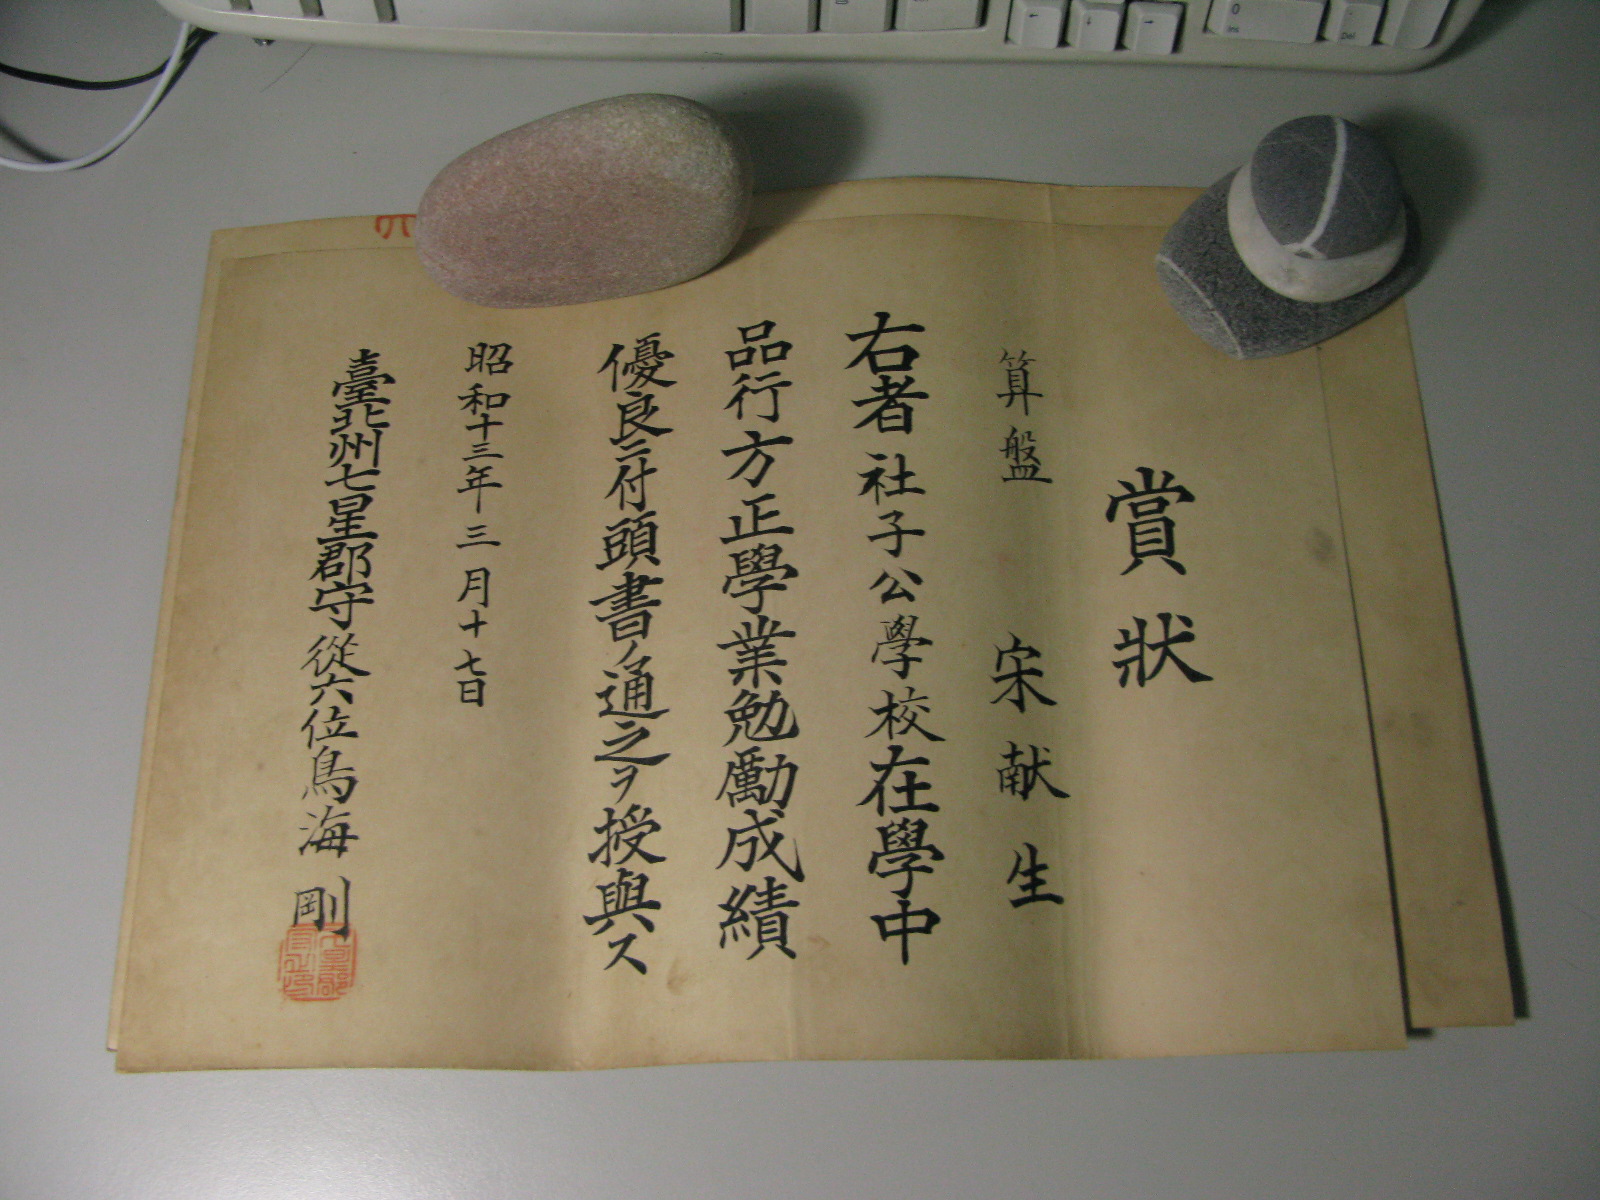 賞状
算盤 宋献生
右者社子公學校在學中
品行方正學業勉勵成績
優良ニ付頭書ノ通之ヲ授與ス
昭和十三年三月十七日
臺北州七星郡守從六位鳥海剛
0
Ins
.
Del
←
↓
→